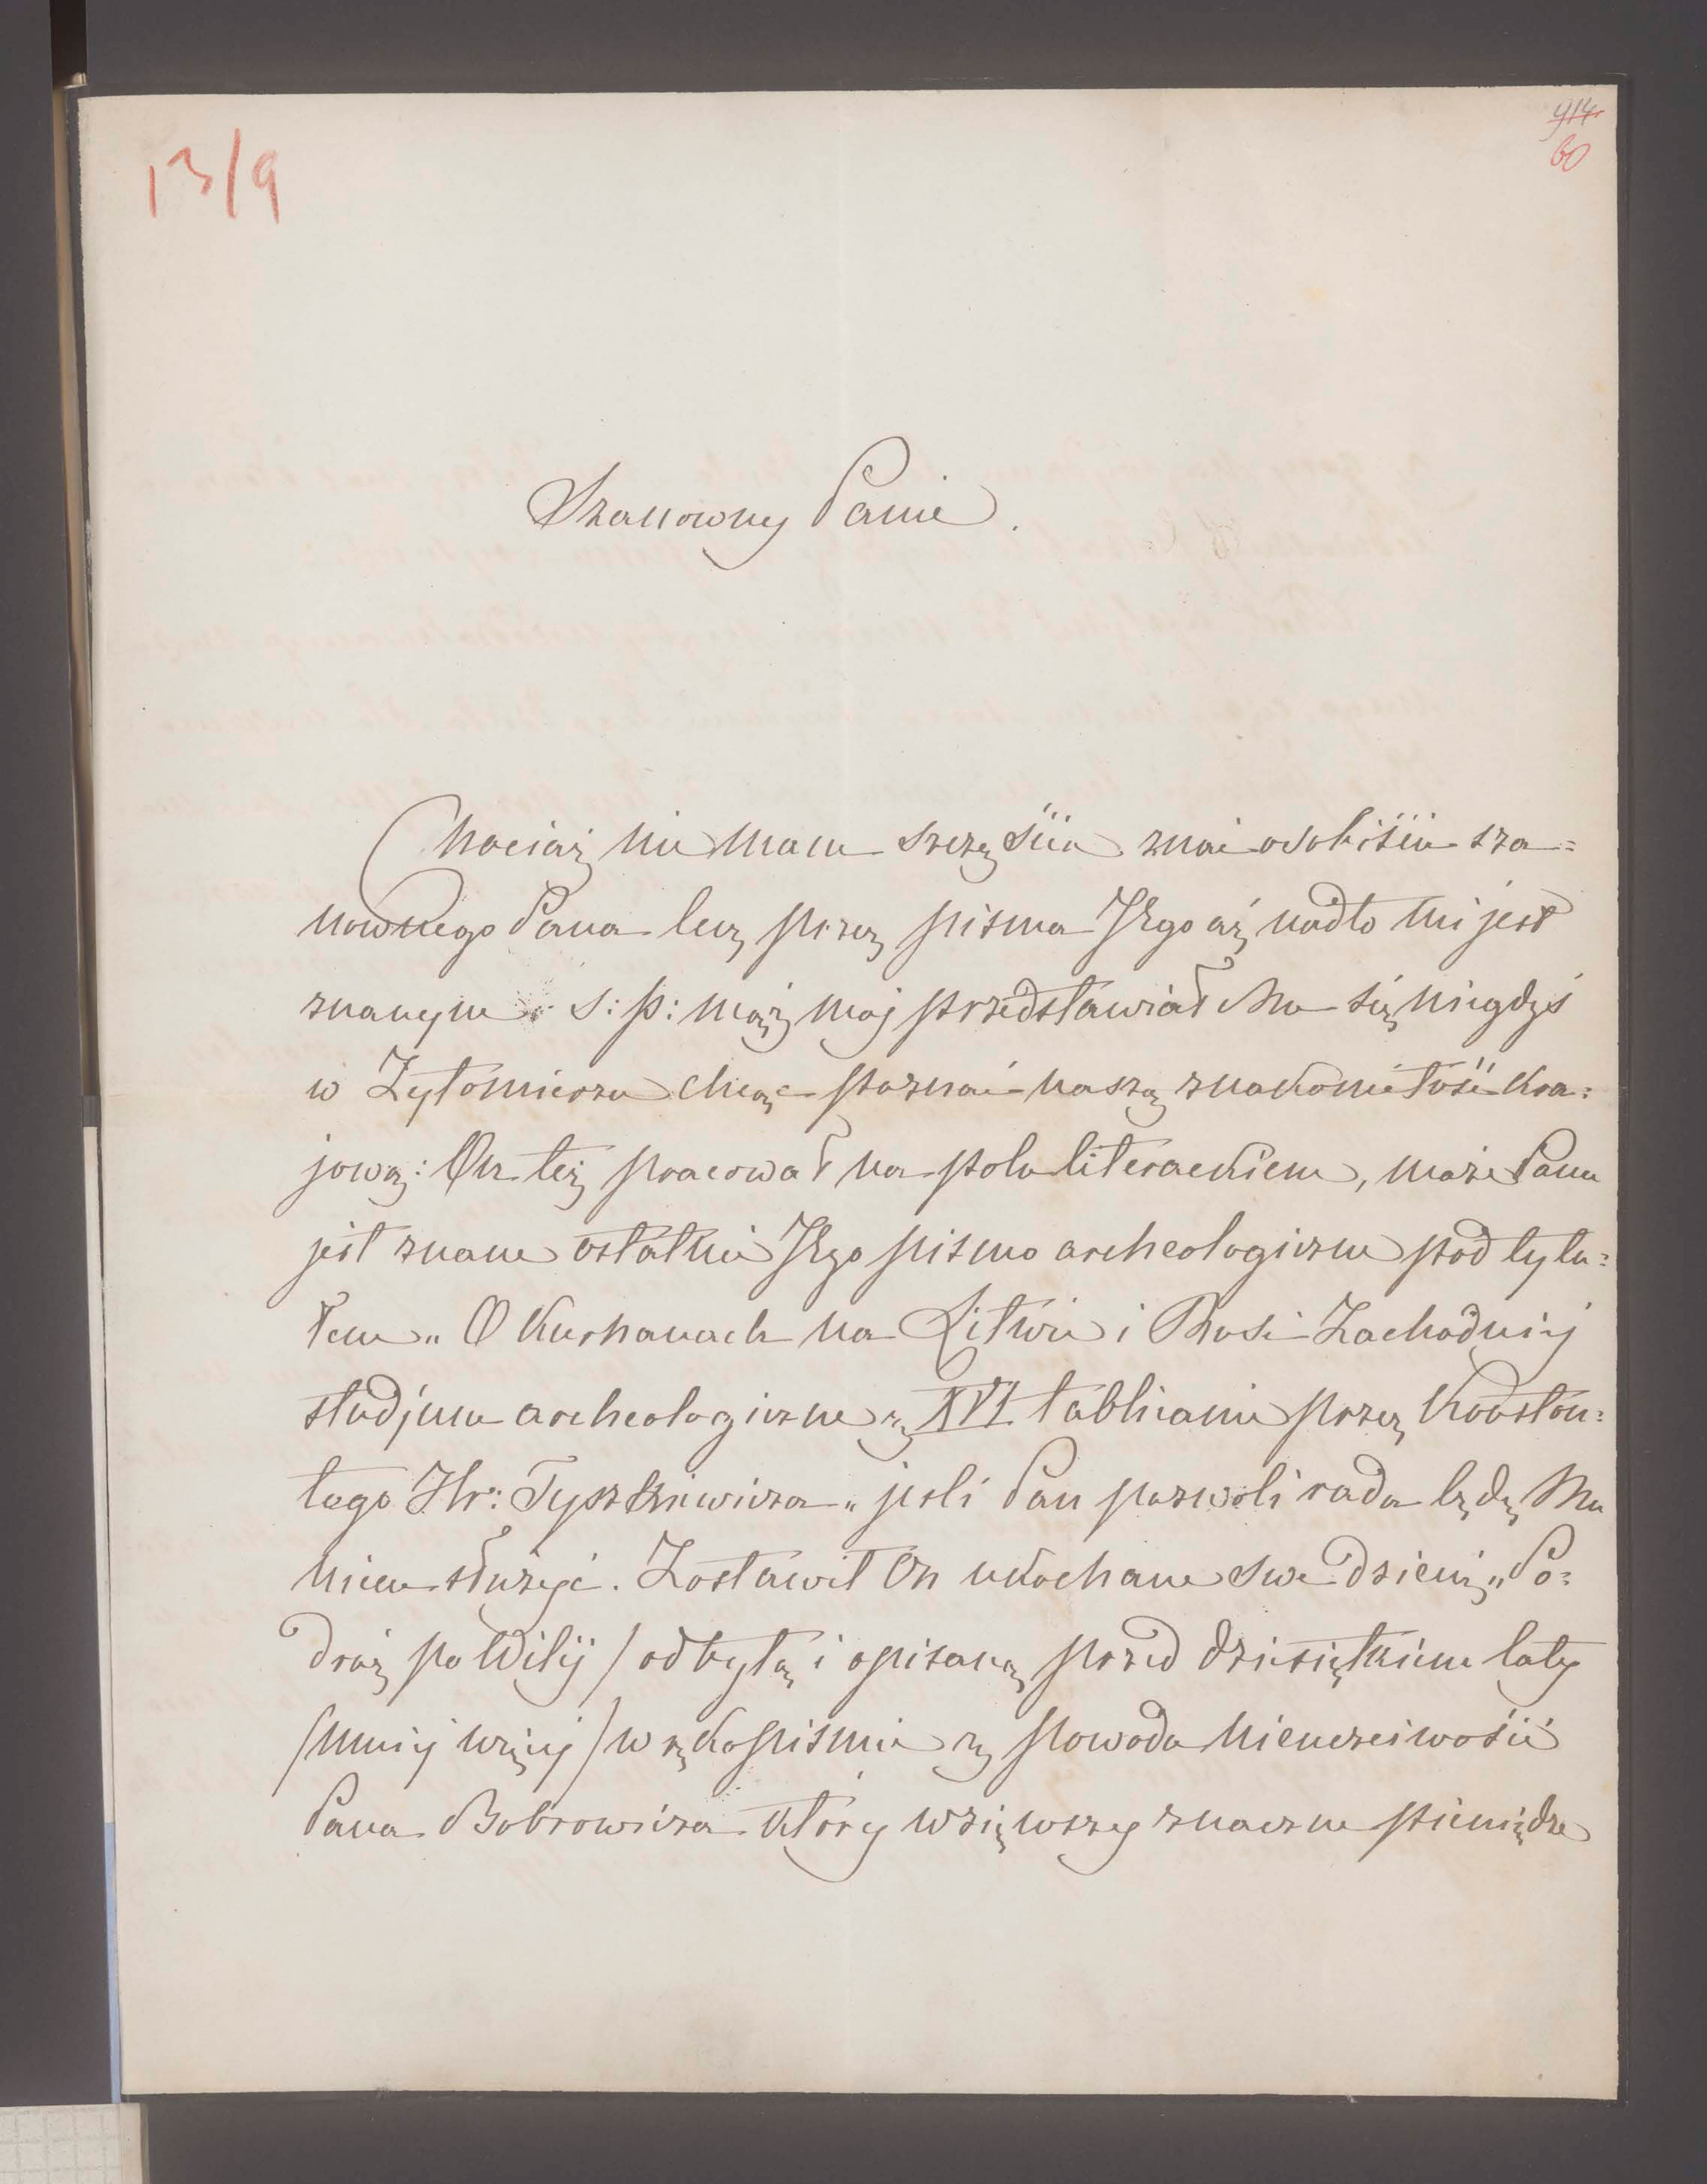 13/9
914
60
Szanowny Panie.
Chociaż nie mam szczęścia znać osobiście sza=
nownego Pana lecz przez pisma Jego aż nadto mi jest
znanym. ś: p: mąż moj przedstawiał Mu się niegdyś
w Żytomierzu chcąc poznać naszą znakomitość kra=
jową: On też pracował na polu literackiem, może Panu
jest znane ostatnie Jego pismo archeologiczne pod tytu=
łem „O Kurhanach na Litwie i Rusi Zachodniej
studjum archeologiczne z XVI tablicami przez Konstan=
tego Hr: Tyszkiewicza" jeśli Pan pozwoli rada będę Mu
niem służyć. Zostawił On ukochane swe dziecię „Po=
dróż po Wilij / odbytą i opisaną przed dziesiętkiem laty
/mniej więcej/ w rękopiśmie z powodu nieuczciwości
Pana Bobrowicza który wziąwszy znaczne pieniądze